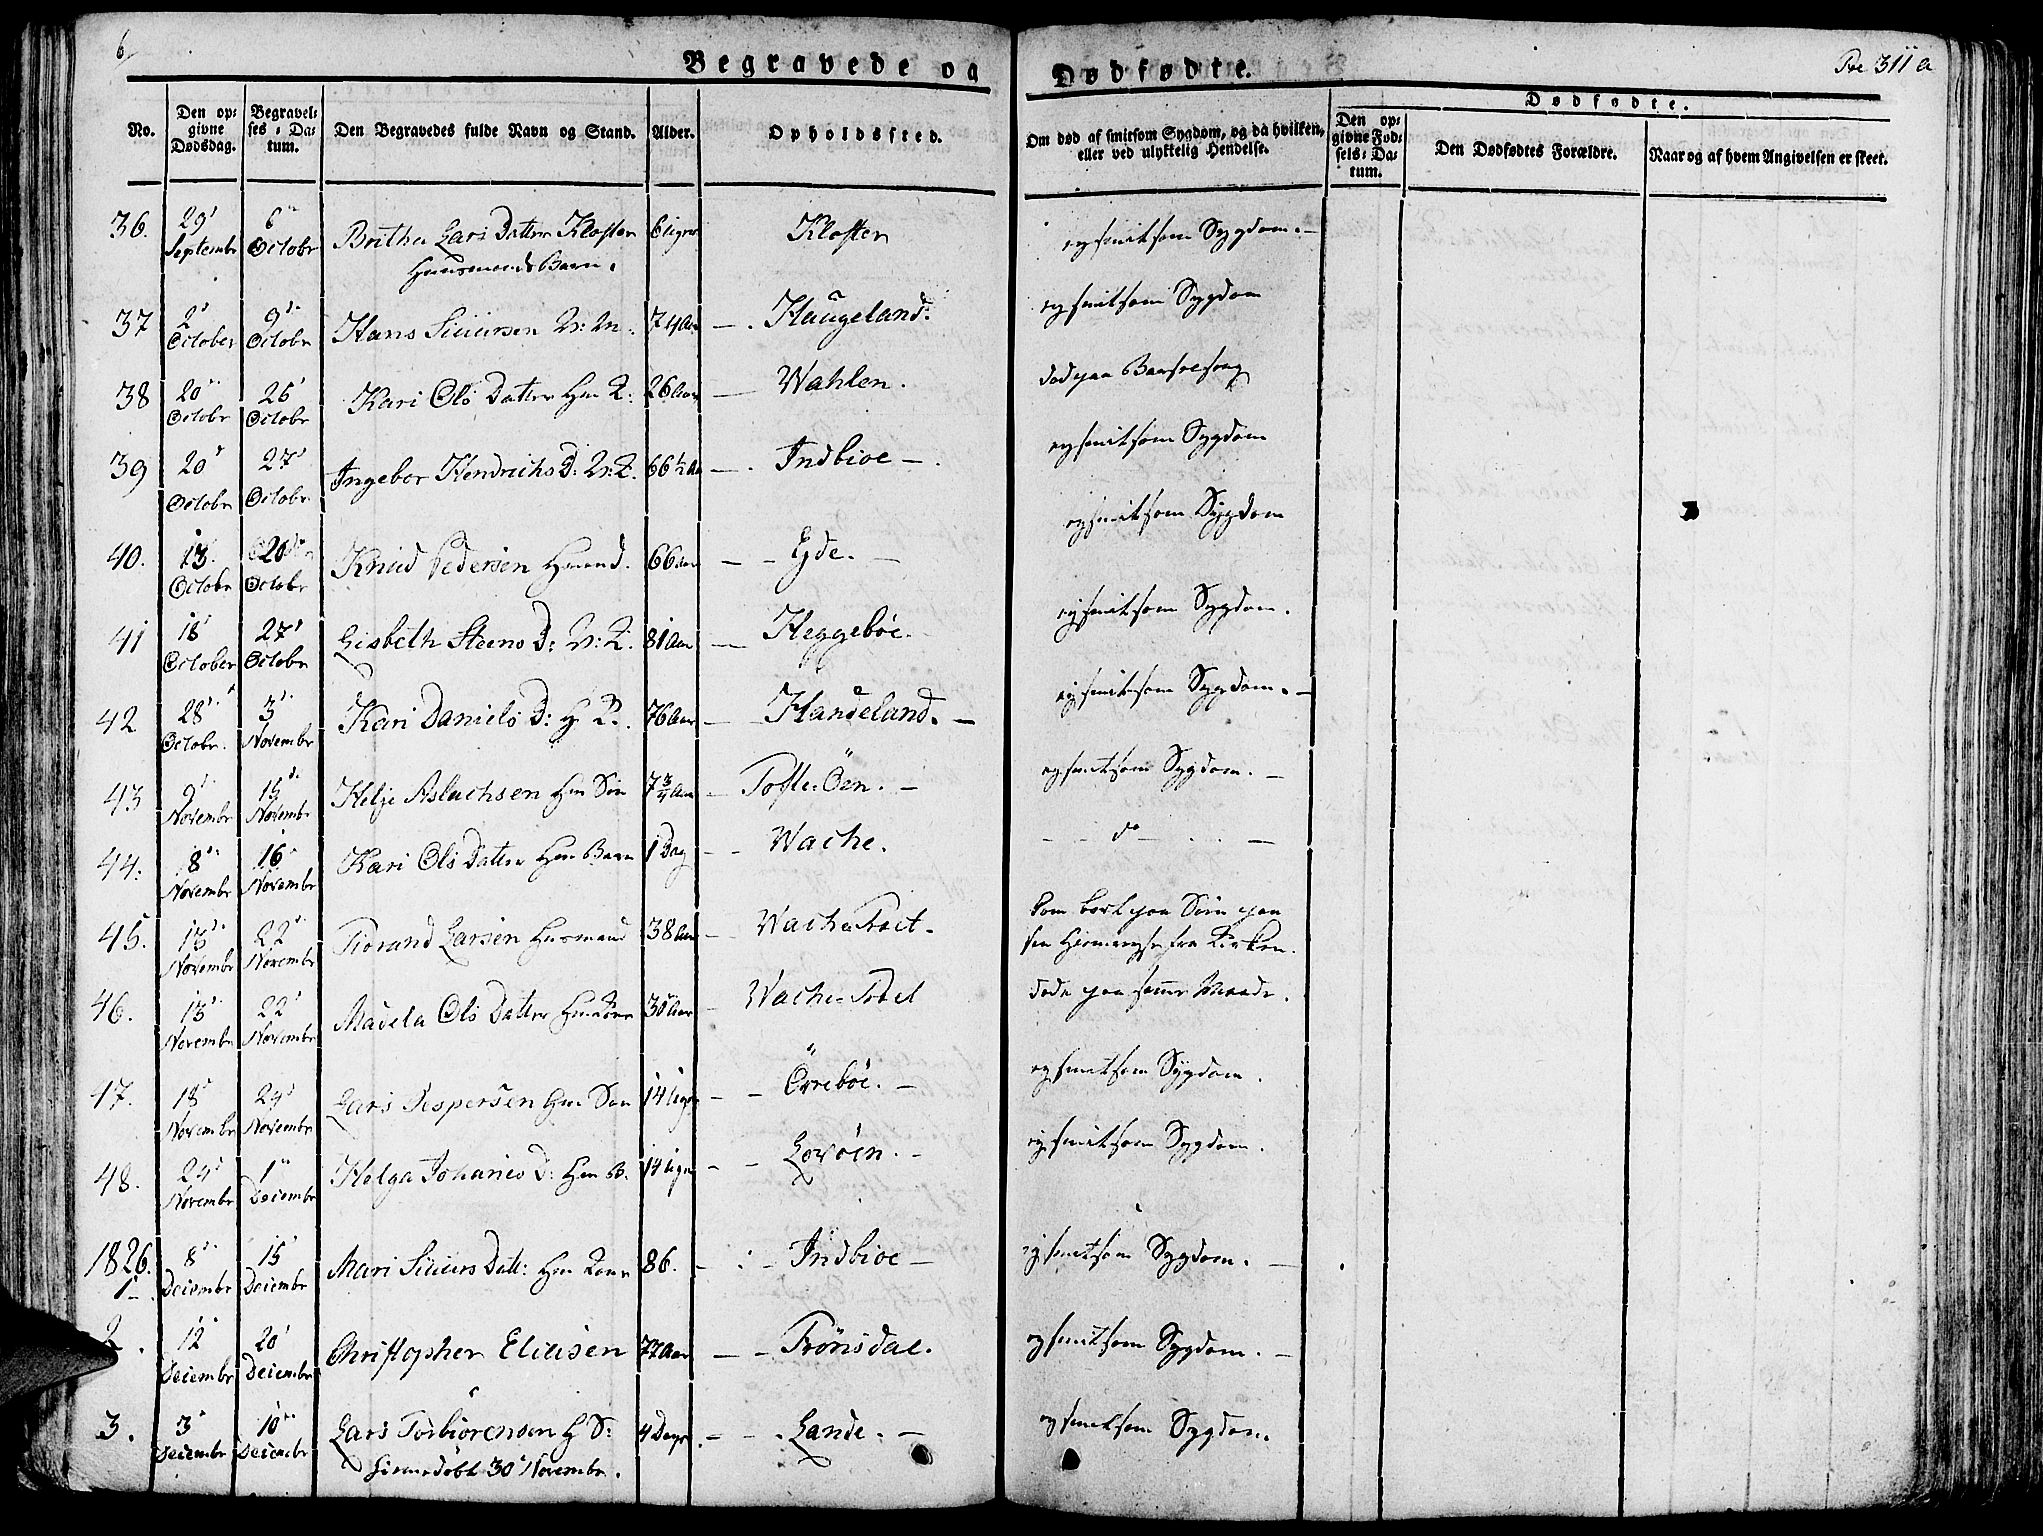 6
Begravede og
Dødfødte.
Pee 311 a
No.
Den op=
givne
Dødsdag.
Begravel=
ses = Da=
tum.
Den Begravedes fulde Navn og Stand.
Alder.
Opholdssted.
Om død af smitsom Sygdom, og da hvilken,
eller ved ulykkelig Hendelse.
Dødfødte.
Den op=
givne Fød=
sels= Da=
tum.
Den Dødfødtes Forældre.
Naar og af hvem Angivelsen er skeet.
36. 29 Septembr 6 Octobr Britha Lars Datter Kloster 6 uger Kloster ey smitsom Sygdom.
Huusmands Barn.
37 2 October 9 Octobr Hans Siuursen 74 Aar Haugeland: ey smitsom Sygdom
38 20 Octobr 26 Octobr Kari Ols Datter 26 Aar Wahlen. død paa Barselseng
39 20 Octobr 27 Octobr Ingebor Hendrichs D: 66½ Aar Indbioe ey smitsom Sygdom
40. 13 Octobr 20 Octobr Knud Pedersen 66 Aar Egde. ey smitsom Sygdom
41 18 October 27 Octobr Lisbeth Steens D: 81 Aar Heggebøe. ey smitsom Sygdom.
42 28 Octobr. 3 Novembr Kari Daniels D: 76 Aar Haudeland. ey smitsom Sygdom.
43 9 Novembr 15 Novembr Helje Aslachsen Hm Søn 7¾ Aar Tofte Öen. ey smitsom Sygdom.
44. 8 Novembr 16 Novembr Kari Ols Datter Hm Barn 1 Dag Wache. do
45. 13 Novembr 22 Novembr Torund Larsen Husmand 38 Aar Wache Træet. kom bort paa Søen paa
sin Hiemreyse fra Kirken.
46. 13 Novembr 22 Novembr Madela Ols Datter Hm Kone 30 Aar Wache Træet døde paa samme Maade.
47. 18 Novembr 29 Novembr Lars Jespersen Hm Søn 14 uger Örebøe. ey smitsom Sygdom.
48. 24 Novembr 1 Decembr Helga Johanes D: Hm B. 14 uger Lovöen. ey smitsom Sygdom.
1826.
1 8 Decembr 15 Decembr Mari Siuurs Datt: Hm Kone 86. Indbioe ey smitsom Sygdom.
2. 12 Decembr 20 Decembr Christopher Eliesen 77 Aar Trönsdal. ey smitsom Sygdom.
3. 3 Decembr 10 Decembr Lars Torbiörensen H S: 4 Dage Lande. ey smitsom Sygdom.
hiemedöbt 30 Novembr.